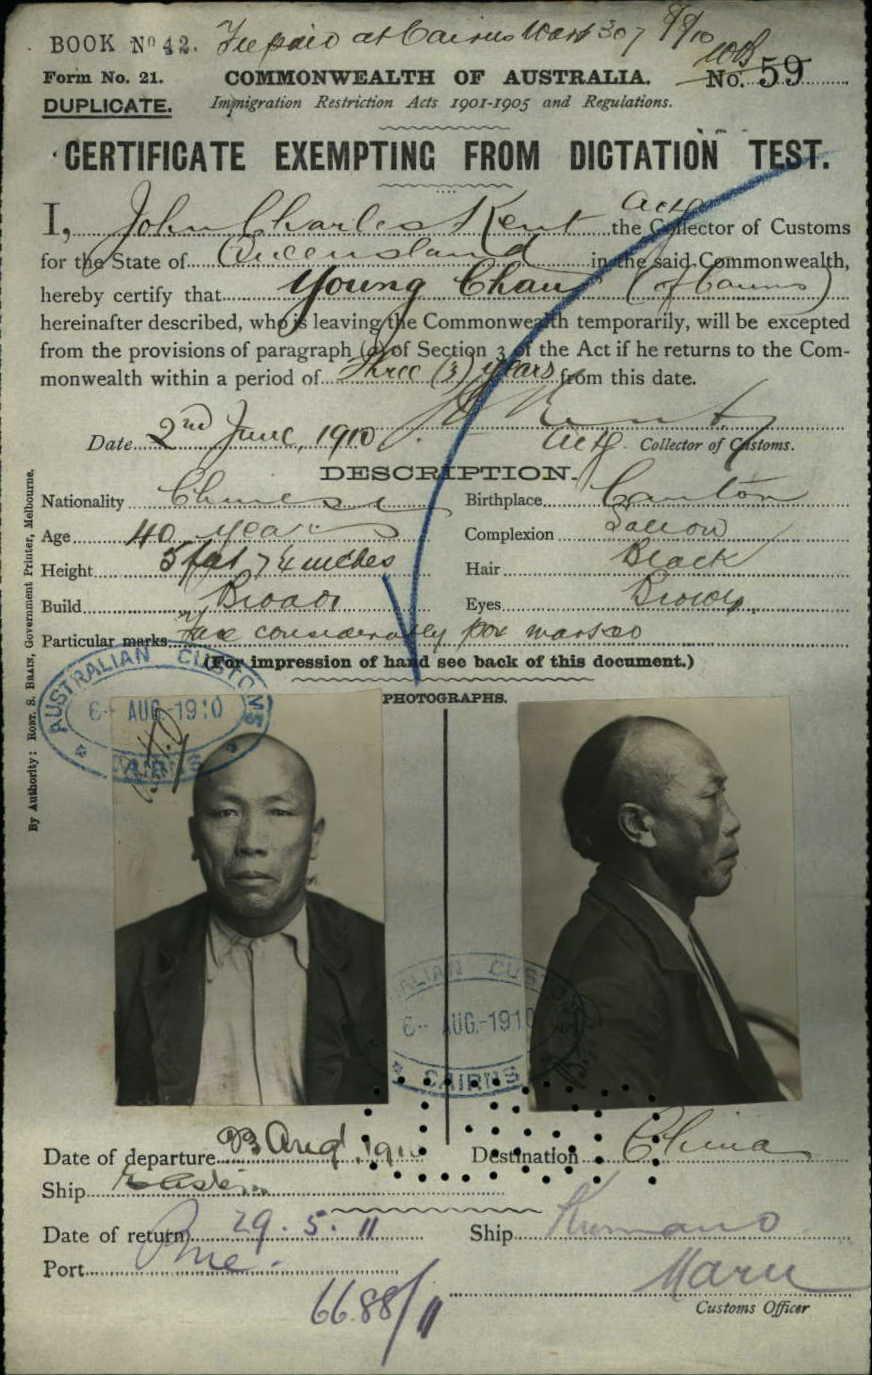 BOOK Nº 42. Fee paid at Cairns Warr 307 8/8/10
Form No. 21. COMMONWEALTH OF AUSTRALIA. No. 59
DUPLICATE. Immigration Restriction Acts 1901-1905 and Regulations.
CERTIFICATE EXEMPTING FROM DICTATION TEST.
I, John Charles Kent Actg the Collector of Customs
for the State of Queensland in the said Commonwealth,
hereby certify that Young Chau (of Cairns)
hereinafter described, who is leaving the Commonwealth temporarily, will be excepted
from the provisions of paragraph (a) of Section 3 of the Act if he returns to the Com-
monwealth within a period of Three (3) years from this date.
Date 2nd June, 1910 J. C. Kent
Actg. Collector of Customs.
DESCRIPTION.
Nationality Chinese Birthplace Canton
Age 40 years Complexion Sallow
Height 5 feet 7¼ inches Hair Black
Build Broad Eyes Brown
Particular marks Face considerably pox marked
(For impression of hand see back of this document.)
PHOTOGRAPHS.
AUSTRALIAN CUSTOMS
6 - AUG-1910
CAIRNS
By Authority: ROBT. S. BRAIN, Government Printer, Melbourne.
ALIAN CUSTOMS
6 - AUG.-1910
CAIRNS
Date of departure 8 Aug 1910 Destination China
Ship Eastern
Date of return 29.5.11 Ship Kumano
Port Bne. Maru
6688/11 Customs Officer